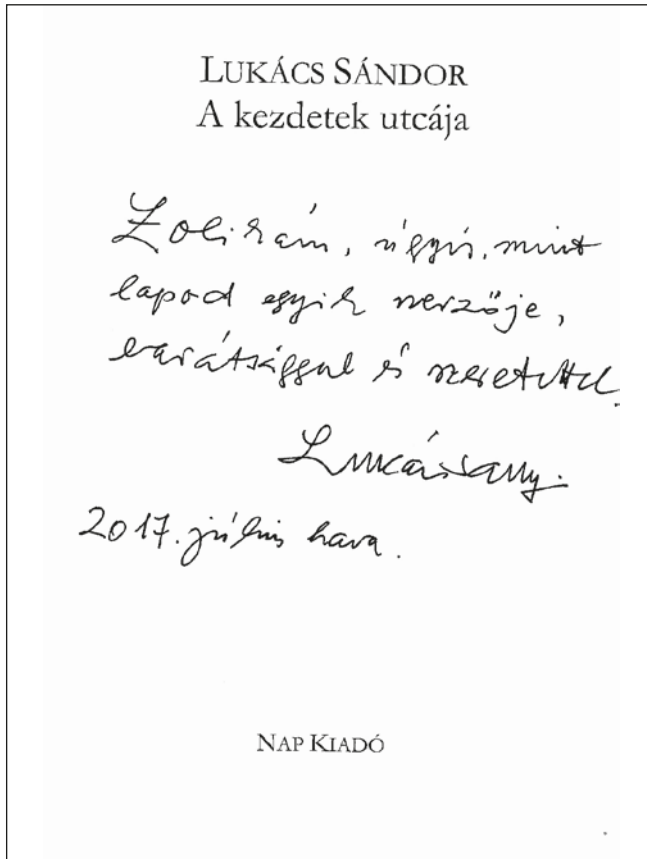 LUKÁCS SÁNDOR
A kezdetek utcája
Zolikám, úgyis, mint
lapod egyik szerzője,
barátsággal és szeretettel.
Lukács Sanyi.
2017. július hava.
NAP KIADÓ